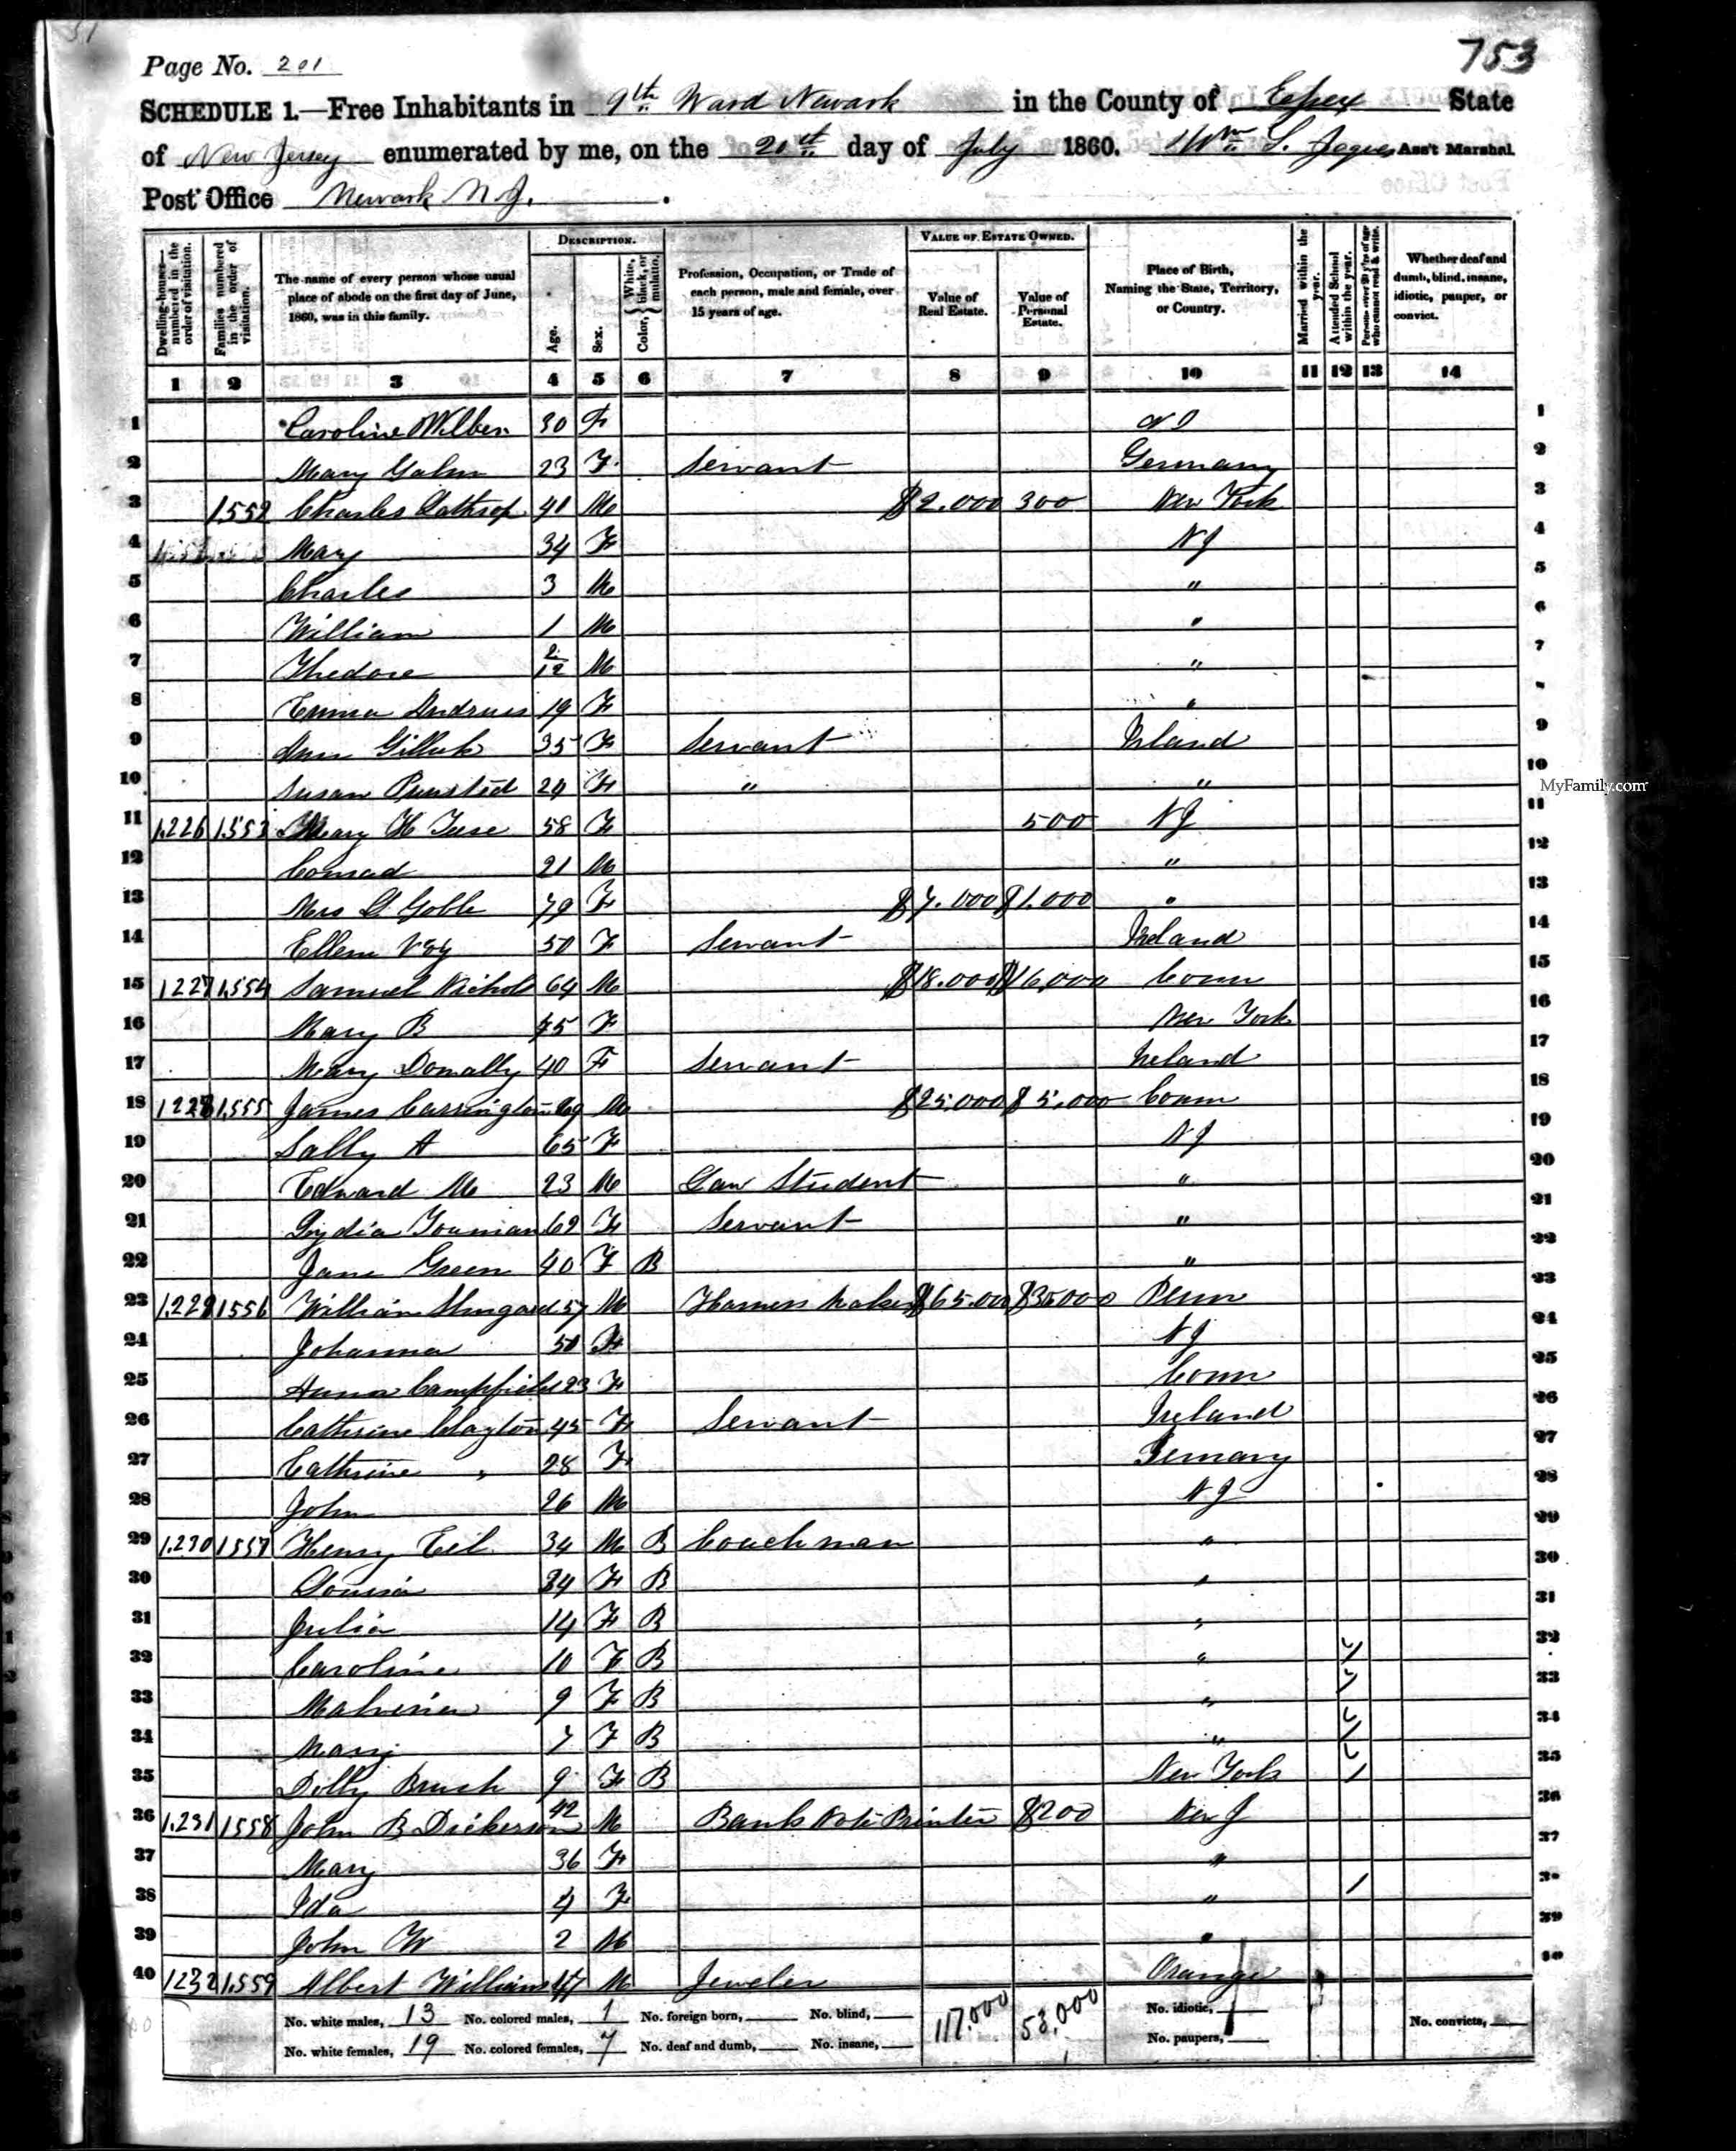 753
Page No. 201
SCHEDULE 1.—Free Inhabitants in 9th Ward Newark in the County of Essex State
of New Jersey enumerated by me, on the 20th day of July 1860. Wm S. Jaques Ass't Marshal
Post Office Newark N.J.
Dwelling-houses—numbered in the order of visitation.
Families numbered in the order of visitation.
The name of every person whose usual place of abode on the first day of June, 1860, was in this family.
DESCRIPTION.
Age.
Sex.
Color, White, black, or mulatto.
Profession, Occupation, or Trade of each person, male and female, over 15 years of age.
VALUE OF ESTATE OWNED.
Value of Real Estate.
Value of Personal Estate.
Place of Birth, Naming the State, Territory, or Country.
Married within the year.
Attended School within the year.
Persons over 20 y'rs of age who cannot read & write.
Whether deaf and dumb, blind, insane, idiotic, pauper, or convict.
1 2 3 4 5 6 7 8 9 10 11 12 13 14
1 Caroline Wilber 30 F 1
2 Mary 23 F Servant Germany 2
3 1552 Charles Lathrop 41 M $2.000 300 New York 3
4 Mary 34 F NJ 4
5 Charles 3 M " 5
6 William 1 M " 6
7 Thedore 2/12 M " 7
8 Emma Andrews 19 F "
9 Ann 35 F Servant Ireland 9
10 Susan 24 F " " 10
MyFamily.com
11 1.226 1.553 Mary H 58 F 500 NJ 11
12 Conrad 21 M " 12
13 Mrs Goble 79 F $7.000 $1.000 " 13
14 Ellen 50 F Servant Ireland 14
15 1227 1.554 Samuel Nichols 64 M $18.000 $16,000 Conn 15
16 Mary B 45 F New York 16
17 Mary Donally 40 F Servant Ireland 17
18 1228 1.555 James Carrington 69 M $25.000 $5,000 Conn 18
19 Sally A 65 F NJ 19
20 Edward M 23 M Law Student " 20
21 Lydia Youman 62 F Servant " 21
22 Jane Green 40 F B " 22
23 1.229 1556 William 57 M Harness Maker $65.000 $30000 Penn 23
24 Johanna 50 F NJ 24
25 Anna Campfield 23 F Conn 25
26 Cathrine Clayton 45 F Servant Ireland 26
27 Cathrine " 28 F Gemany 27
28 John 26 M NJ 28
29 1.230 1557 Henry 34 M B Coachman " 29
30 Louisa 34 F B " 30
31 Julia 14 F B " 31
32 Caroline 10 F B " / 32
33 Malvina 9 F B " / 33
34 Mary 7 F B " / 34
35 Dolly Brush 9 F B New York / 35
36 1.231 1558 John B Dickerson 42 M Bank Note Printer $200 New J 36
37 Mary 36 F " 37
38 Ida 4 F " /
39 John W 2 M " 39
40 1232 1.559 Albert Williams 47 M Jeweler Orange 40
No. white males, 13 No. colored males, 1 No. foreign born, No. blind, 117.000 53,000 No. idiotic, No. convicts,
No. white females, 19 No. colored females, 7 No. deaf and dumb, No. insane, No. paupers,